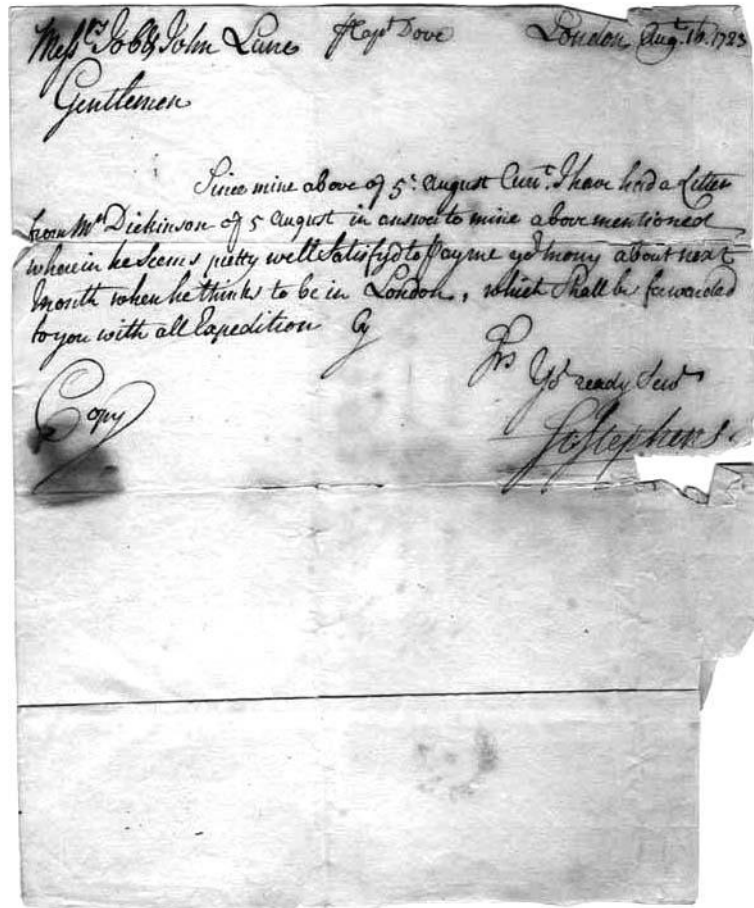 Mess.rs Job & John Lane Capt Dove London Augt. 16. 1723
Gentlemen
Since mine above of 5: August Curr.t I have had a Letter
from Mr Dickinson of 5 August in answer to mine above mentioned
wherein he Seems pretty well Satisfyd to pay me ye mony about next
Month when he thinks to be in London, which Shall be forwarded
to you with all Expedition
Yor. ready Servt
Copy
Jo: Stephens